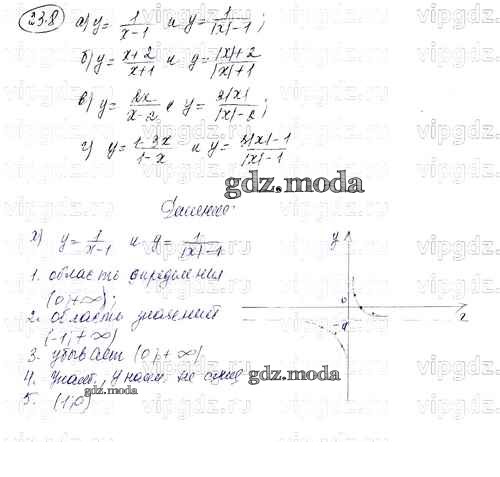 23.8 а) y = 1/(x-1) и y = 1/(|x|-1);
б) y = (x+2)/(x+1) и y = (|x|+2)/(|x|+1)
в) y = 2x/(x-2) и y = 2|x|/(|x|-2);
г) y = (1-3x)/(1-x) и y = (3|x|-1)/(|x|-1)
gdz.moda
Решение.
а) y = 1/(x-1) и y = 1/(|x|-1)
1. область определения
(0;+∞);
2. область значений
(-1;+∞)
3. убывает (0;+∞)
4. унаиб., y наим. не сущ
5. (1;0)
gdz.moda
y
0
-1
x
gdz.moda
vipgdz.ru